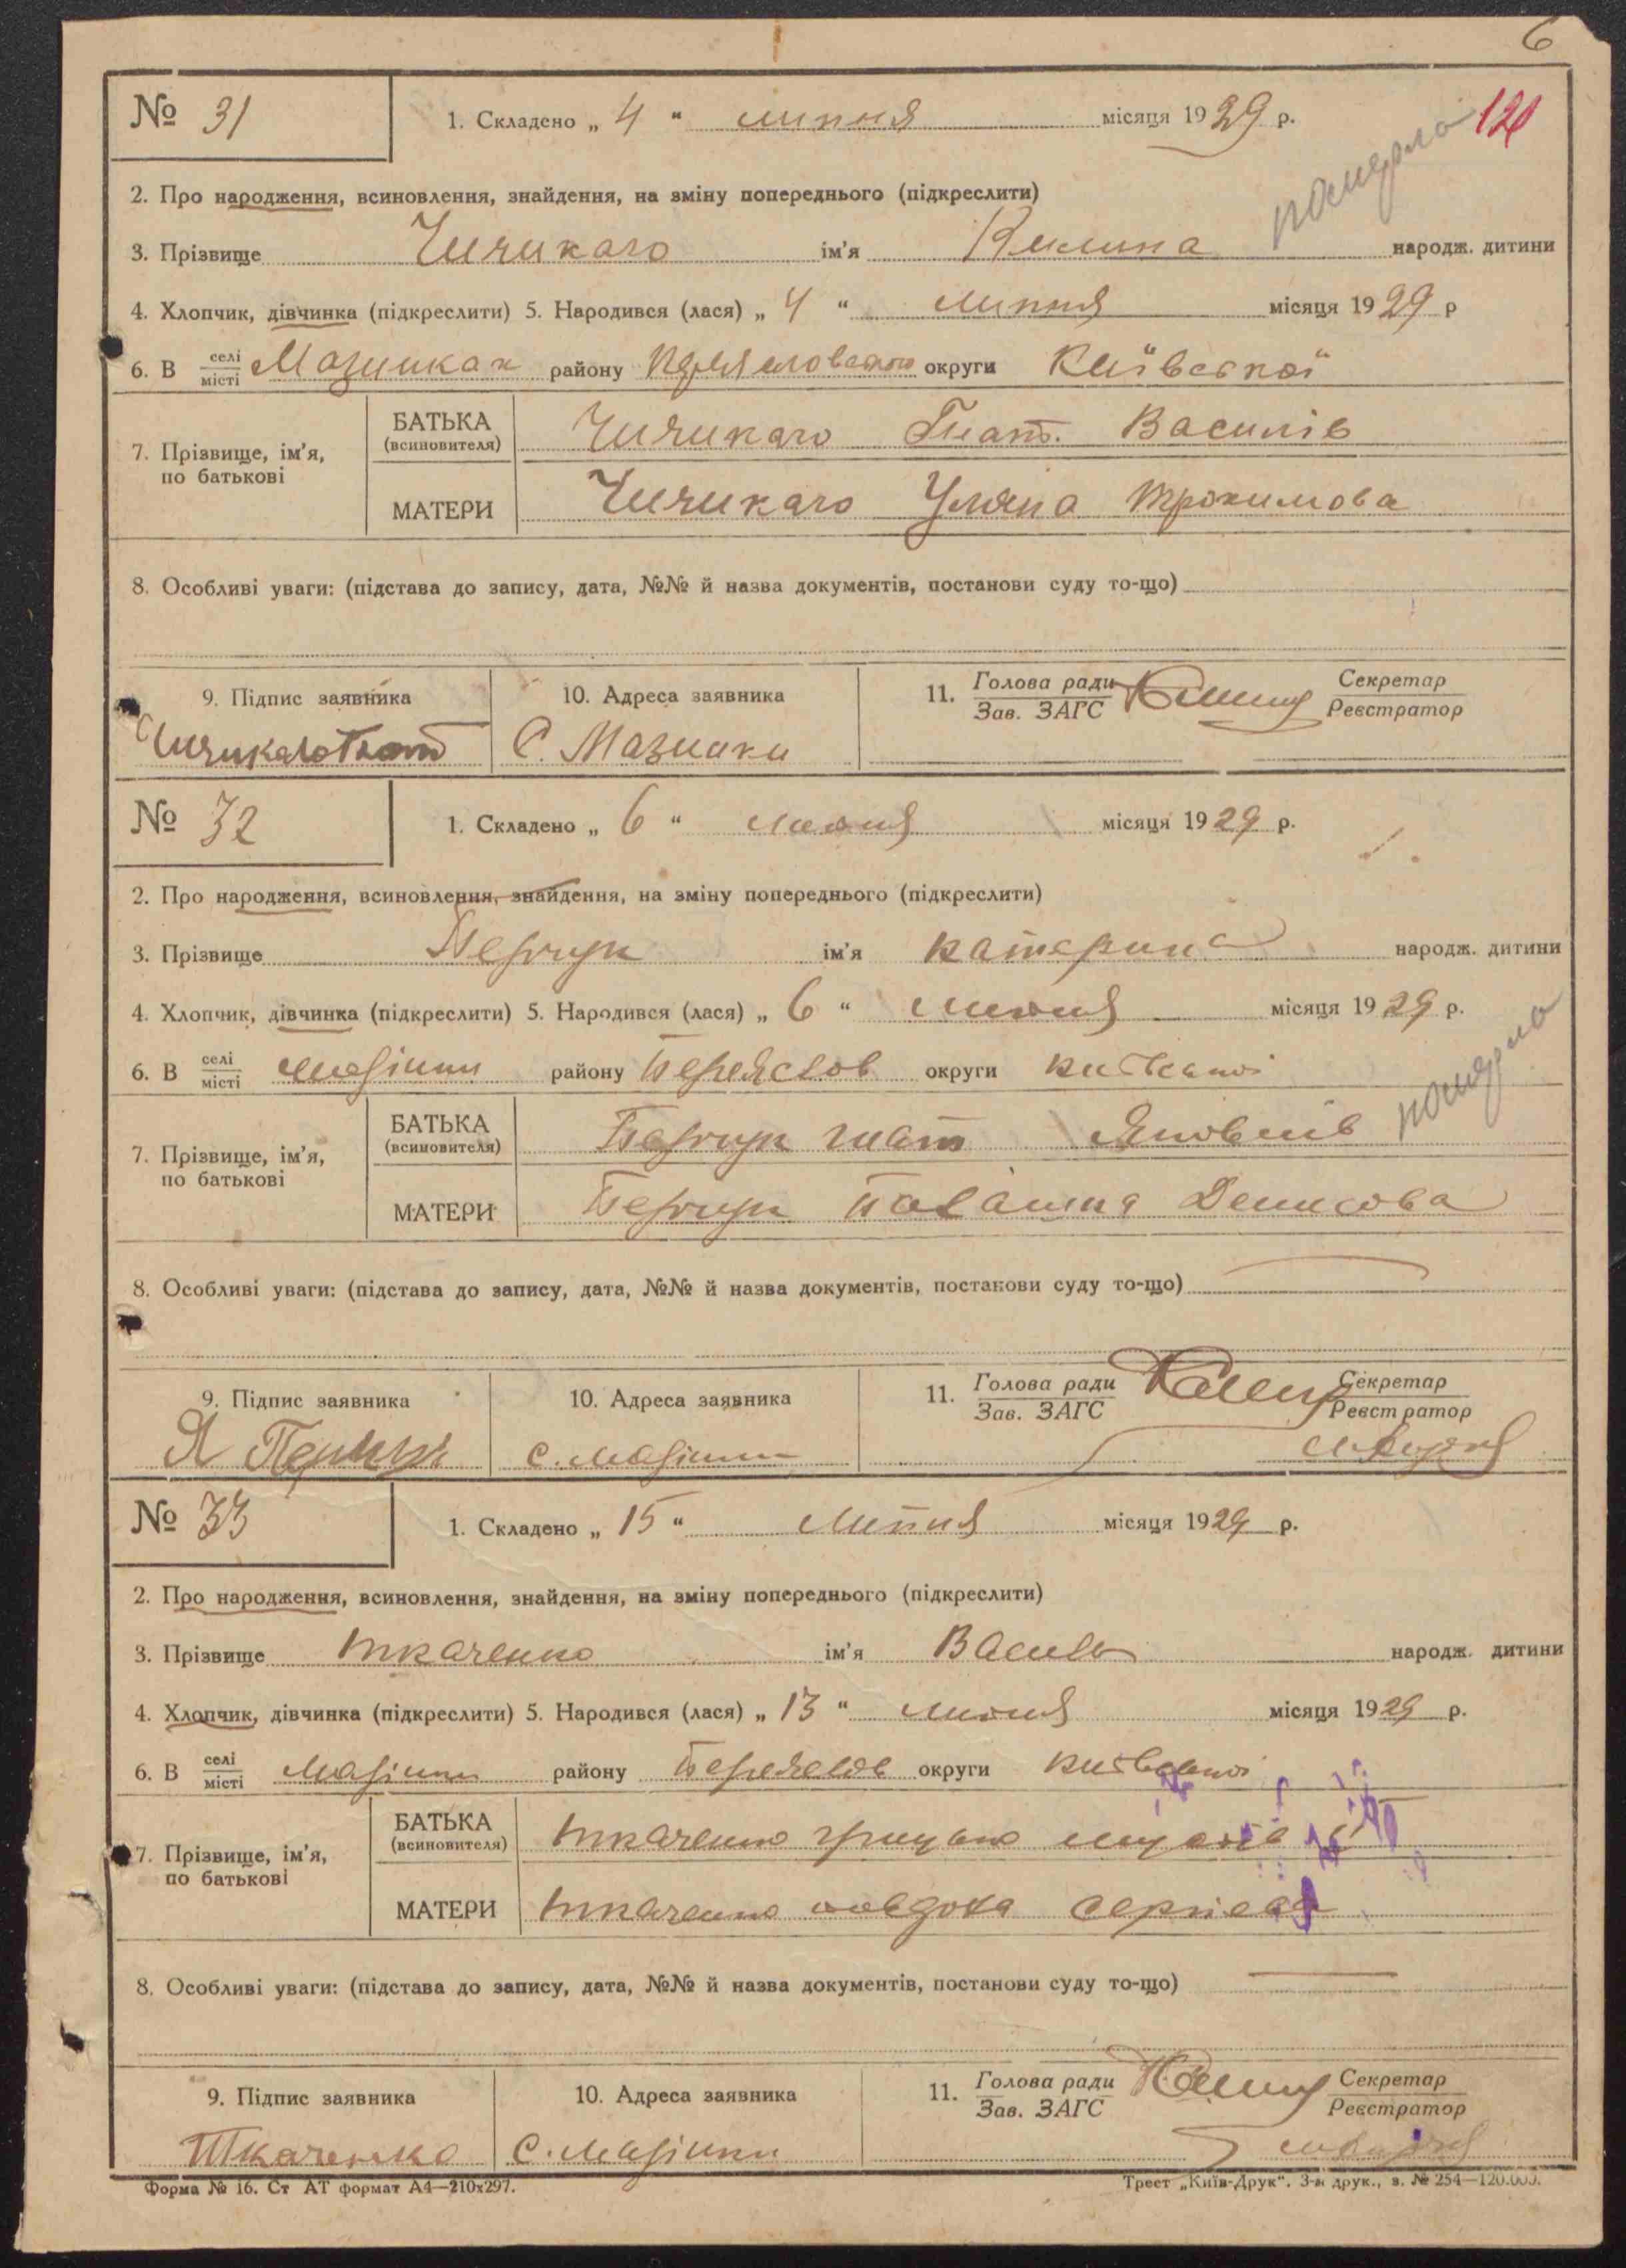 6
№ 31
1. Складено „ 4 “ липня місяця 1929 р.
120
померла
2. Про народження, всиновлення, знайдення, на зміну попереднього (підкреслити)
3. Прізвище Чичикало ім'я Килина народж. дитини
4. Хлопчик, дівчинка (підкреслити) 5. Народився (лася) „ 4 “ липня місяця 1929 р
6. В селі/місті Мазинках району округи Київської
7. Прізвище, ім'я, по батькові
БАТЬКА (всиновителя) Чичикало Гнат. Василів
МАТЕРИ Чичикало Уляна Трохимова
8. Особливі уваги: (підстава до запису, дата, №№ й назва документів, постанови суду то-що)
9. Підпис заявника 10. Адреса заявника 11. Голова ради/Зав. ЗАГС Секретар/Реєстратор
Чичикало Гнат С. Мазинки
№ 32
1. Складено „ 6 “ липня місяця 1929 р.
2. Про народження, всиновлення, знайдення, на зміну попереднього (підкреслити)
3. Прізвище ім'я Катерина народж. дитини
4. Хлопчик, дівчинка (підкреслити) 5. Народився (лася) „ 6 “ липня місяця 1929 р.
6. В селі/місті Мазінки району Переяслов округи Київської
померла
7. Прізвище, ім'я, по батькові
БАТЬКА (всиновителя) гнат
МАТЕРИ Денисова
8. Особливі уваги: (підстава до запису, дата, №№ й назва документів, постанови суду то-що)
9. Підпис заявника 10. Адреса заявника 11. Голова ради/Зав. ЗАГС Секретар/Реєстратор
с. Мазінки
№ 33
1. Складено „ 15 “ Липня місяця 1929 р.
2. Про народження, всиновлення, знайдення, на зміну попереднього (підкреслити)
3. Прізвище Ткаченко ім'я Василь народж. дитини
4. Хлопчик, дівчинка (підкреслити) 5. Народився (лася) „ 13 “ липня місяця 1929 р.
6. В селі/місті Мазінки району Переяслов округи Київської
7. Прізвище, ім'я, по батькові
БАТЬКА (всиновителя) Ткаченко грицько
МАТЕРИ Ткаченко
8. Особливі уваги: (підстава до запису, дата, №№ й назва документів, постанови суду то-що)
9. Підпис заявника 10. Адреса заявника 11. Голова ради/Зав. ЗАГС Секретар/Реєстратор
Ткаченко С. Мазінки
Форма № 16. Ст АТ формат А4—210х297.
Трест „Київ-Друк“. 3-я друк., з. № 254—120.000.